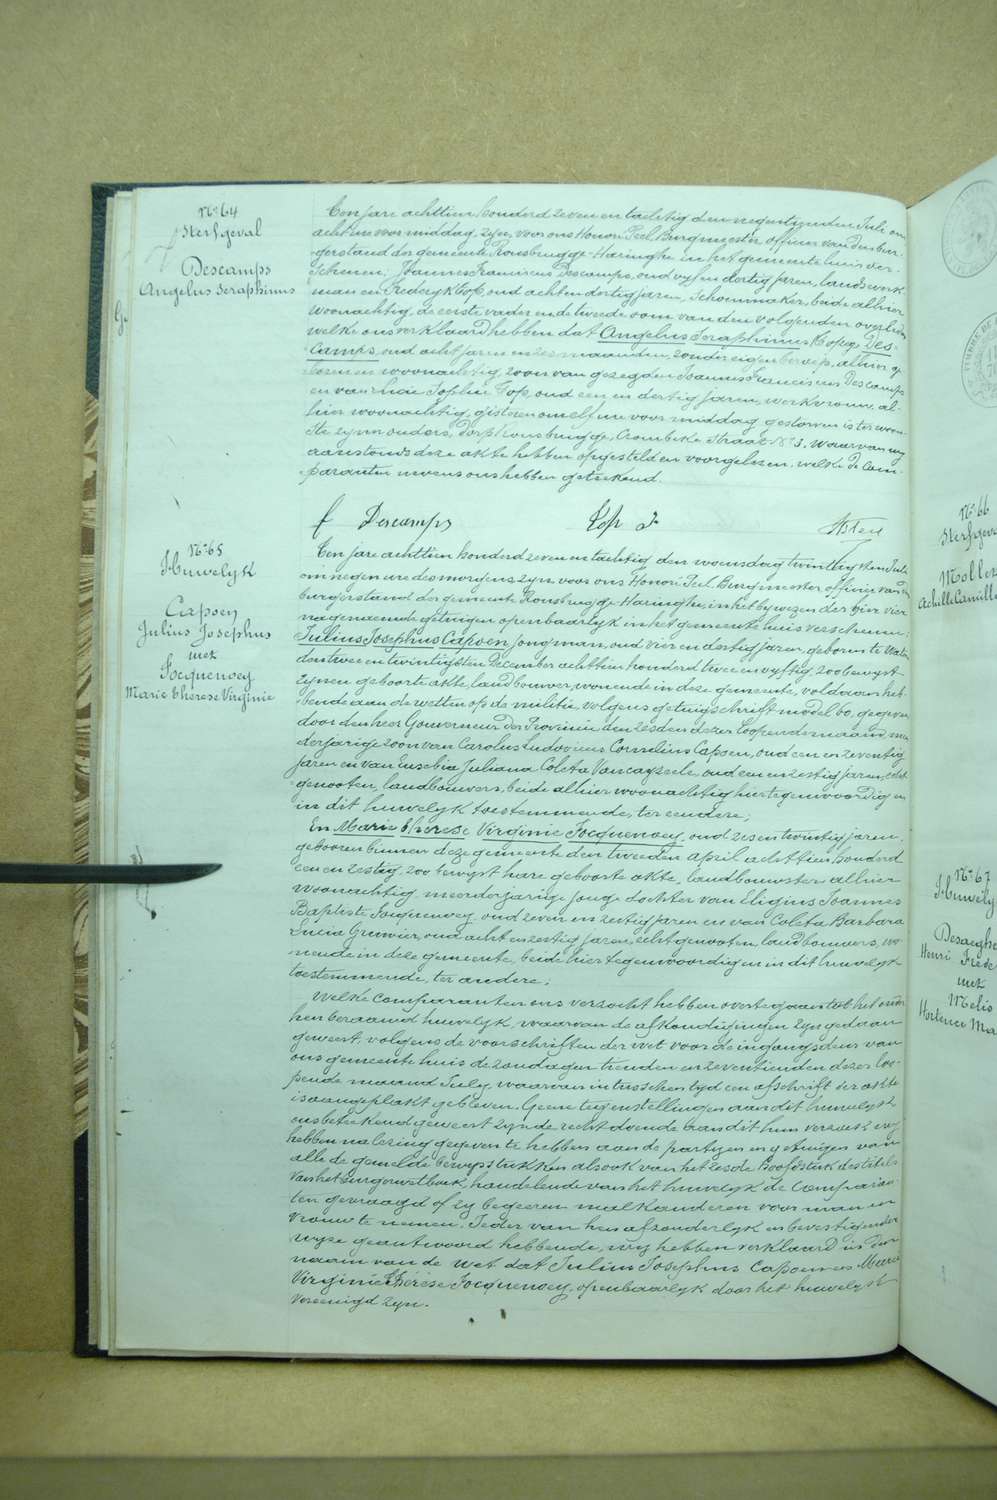 No 64
Sterfgeval
Descamps
Angelus Seraphinus
Ten jare achttien honderd zeven en tachtig den negentienden Juli om
acht ure voormiddag, zyn, voor ons Honoré Peel, Burgmeester officier van den bur-
gerstand der gemeente Rousbrugge-Haringhe in het gemeentehuis ver-
schenen; Joannes Franciscus Descamps, oud vyf en dertig jaren, landswerk
man en Frederyk Top, oud acht en dertig jaren, schoenmaker, beide alhier
woonachtig, de eerste vader en de tweede oom van den volgenden overleden
welke ons verklaard hebben dat Angelus Seraphinus Des
Camps, oud acht jaren en zes maanden, zonder eigen beroep, alhier ge
boren en woonachtig, zoon van gezegden Joannes Franciscus Descamps
en van Sophie Top, oud een en dertig jaren, werkvrouw, al-
hier woonachtig, gisteren om elf ure voormiddag gestorven is ter woon-
ste zyner ouders, Dorp Rousbrugge, Crombeke Straat No 3. Waarvan wy
aanstonds deze akte hebben opgesteld en voorgelezen, welke de Com-
paranten nevens ons hebben geteekend.
f Descamps Top f HPeel
No 65
Huwelyk
Capoen
Julius Josephus
met
Jocquenoey
Marie Therese Virginie
Ten jare achttien honderd zeven en tachtig den woensdag twintigsten Juli
om negen ure des morgens, zyn voor ons Honoré Peel, Burgmeester, officier van den
burgerstand der gemeente Rousbrugge-Haringhe, in het bywezen der hier vier
nagenaemde getuigen openbaarlyk in het gemeentehuis verschenen:
Julius Josephus Capoen, jongman, oud vier en dertig jaren, geboren te Watou
den twee en twintigsten December achttien honderd twee en vyftig, zoo bewyst
zynen geboorte akte, landbouwer, wonende in deze gemeente, voldaan heb-
bende aan de wetten op de militie, volgens getuigschrift model 60, gegeven
door den heer Gouverneur der Provincie den zesden dezer loopende maand, meer
derjarige zoon van Carolus Ludovicus Cornelius Capoen, oud een en zeventig
jaren en van Eusebia Juliana Coleta Vancayzeele, oud een en zestig jaren, echt
genooten, landbouwers, beide alhier woonachtig hier tegenwoordig en
in dit huwelyk toestemmende, ter eendere;
En Marie Therese Virginie Jocquenoey, oud zes en twintig jaren,
geboren binnen deze gemeente den tweeden april achttien honderd
een en zestig, zoo bewyst hare geboorte akte, landbouwster alhier
woonachtig meerderjarige jonge dochter van Eligius Joannes
Baptiste Jocquenoey, oud zeven en zestig jaren en van Coleta Barbara
Lucia Gruwier, oud acht en zestig jaren, echtgenooten, landbouwers, wo-
nende in deze gemeente, beide hier tegenwoordig en in dit huwelyk
toestemmende, ter andere;
Welke Comparanten ons verzocht hebben overtegaan tot het onder
hen beraamd huwelyk, waarvan de afkondigingen zyn gedaan
geweest, volgens de voorschriften der wet voor de ingangsdeur van
ons gemeentehuis de zondagen tienden en zeventienden dezer loo-
pende maand July, waarvan intusschentyd een afschrift der akte
is aangeplakt gebleven. Geene tegenstellingen aan dit huwelyk
ons beteekend geweest zynde recht doende aan dit hun verzoek wy
hebben na lezing gegeven te hebben aan de partyen en getuigen van
alle de gemelde bewysstukken alsook van het zesde Hoofdstuk des titels
van het burgerwetboek handelende van het huwelyk de Comparan-
ten gevraagd of zy begeeren malkanderen voor man en
vrouw te nemen. Ieder van hen afzonderlyk en bevestigender
wyze geantwoord hebbende, wy hebben verklaard in den
naam van de wet dat Julius Josephus Capoen en Marie
Virginie Thérèse Jocquenoey, openbaarlyk door het huwelyk
vereenigd zyn.
No 66
Sterfgeva
Mollez
Achille Camille
No 67
Huwely
Desaeghe
Henri Frede
met
Melis
Hortence Mar